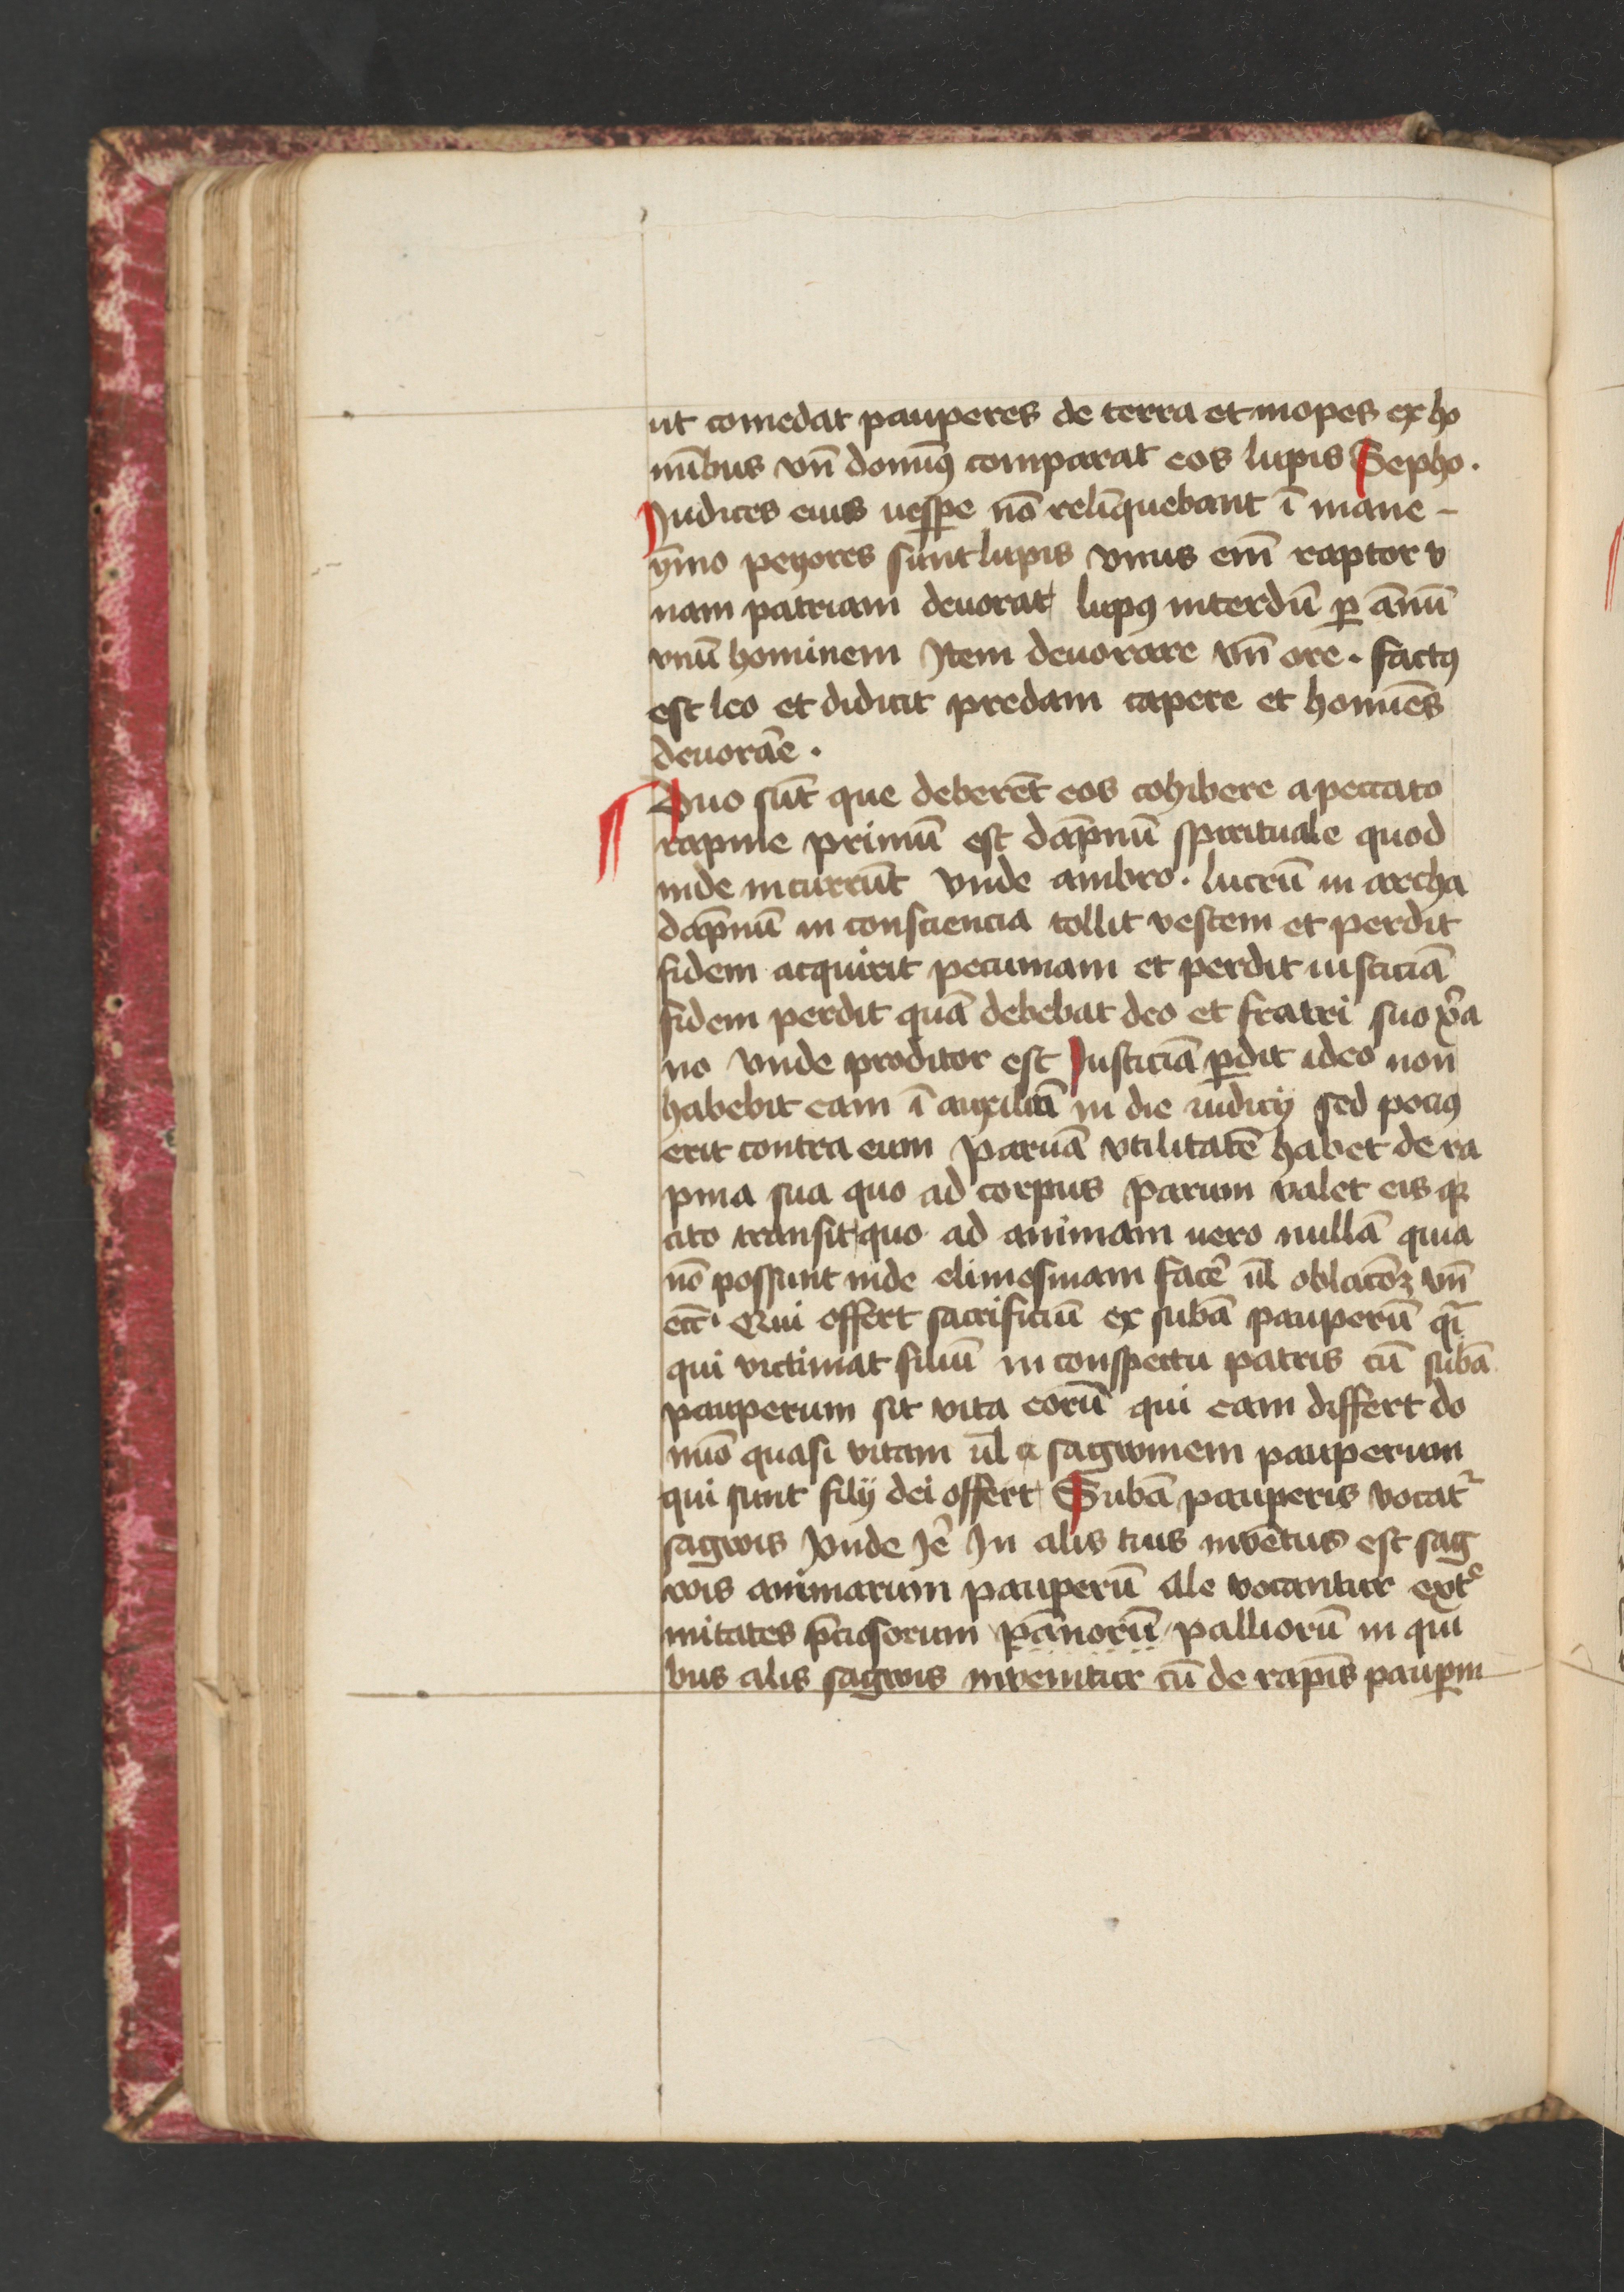 ut comedat pauperes de terra et inopes ex ho
mībus vn̄ domīꝰ comparat eos lupis Sepho.
Judices eius uesꝑe nō relīquebant ī mane -
ẏmo peyores sunt lupis vnus em̄ raptor v
nam patriam deuorat lupꝰ interdū ꝑ ānū
vnū hominem Item deuorare vn̄ ore. factꝰ
est leo et didicit predam capere et homīes
deuorāe.
Duo sūt que deberēt eos cohibere a peccato
rapine primū est dāpnū spirituale quod
inde incurrūt vnde ambro. lucrū in archa
dāpnū in consciencia tollit vestem et perdit
fidem acquirit pecuniam et perdit iusticiā
fidem perdit quā debebat deo et fratri suo xp̄ia
no vnde proditor est Justiciā ꝑdit ideo non
habebit eam ī auxiliū in die iudicij sed pociꝰ
erit contra eum paruā vtilitatē habet de ra
pina sua quo ad corpus parum valet eis qꝛ
cito transit quo ad animam uero nullā quia
nō possunt inde elimosinam facē ul̄ oblacōꝫ vn̄
ecc̄ī Qui offert sacrificiū ex subā pauperū qī
qui victimat filiū in conspectu patris cū subā
pauperum sit vita eorū qui eam differt do
mīo quasi vitam ul̄ a sagwinem pauperum
qui sunt filij dei offert Subā pauperis vocatᷣ
sagwis Vnde Iē In alis tuis inuētus est sag
wis animarum pauperū ale vocantur extᵉ
mitates p̄ciosorum pānorū palliorū in qui
bus alis sagwis inuenitur cū de rapīs pauꝑm